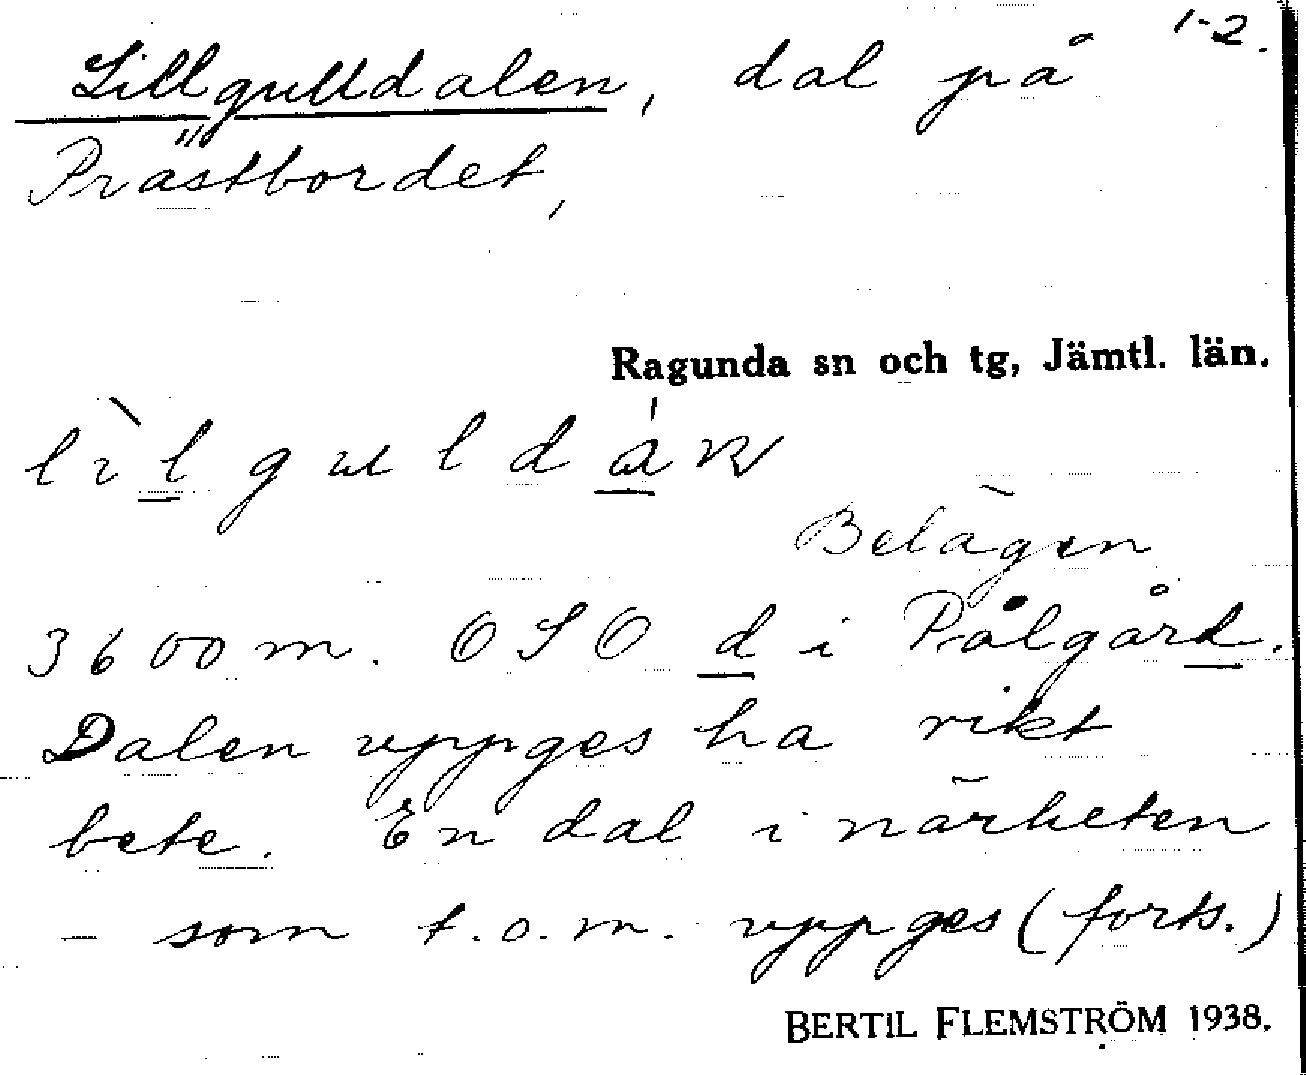 1-2.
Lillgulldalen, dal på
Prästbordet,
Ragunda sn och tg, Jämtl. län.
Belägen
3600 m. OSO d i Pålgård.
Dalen uppges ha rikt
bete. En dal i närheten
– som t.o.m. uppges (forts.)
BERTIL FLEMSTRÖM 1938.